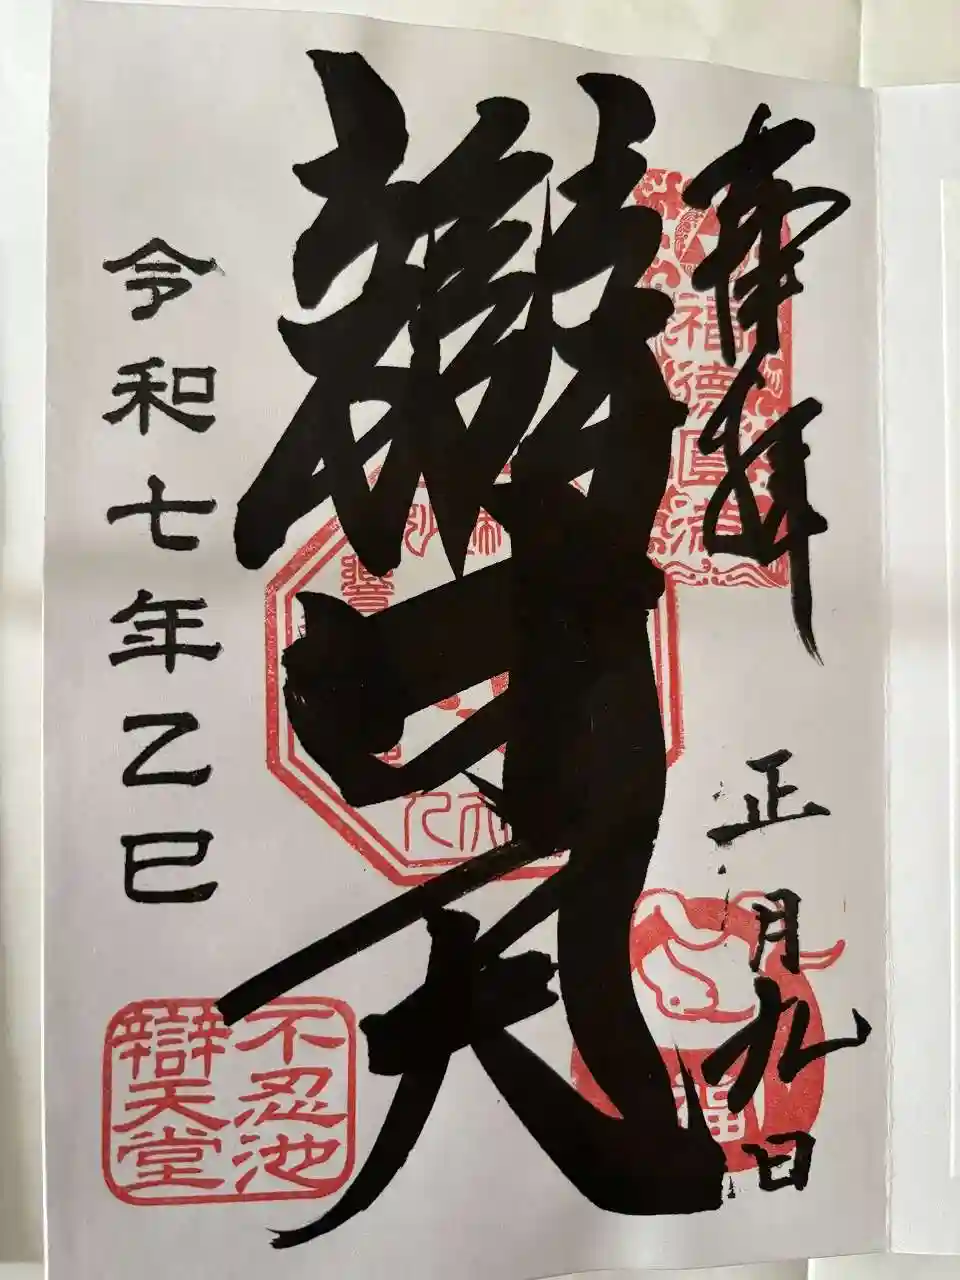 奉拝
正月九日
福徳円満
辯才天
令和七年乙巳
不忍池
辯天堂
福